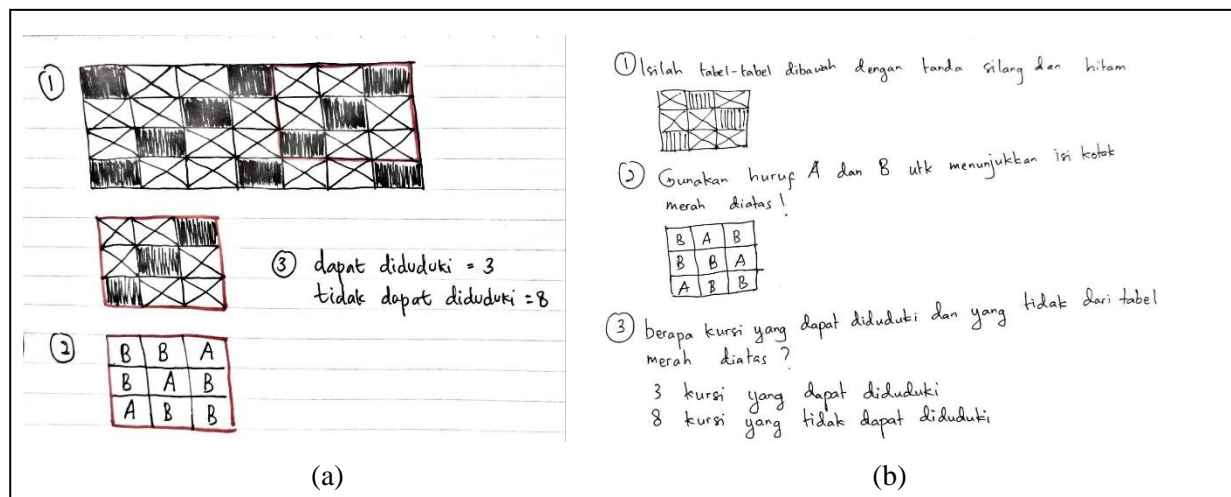 ①
③ dapat diduduki = 3
tidak dapat diduduki = 8
②
B B A
B A B
A B B
(a)
① Isilah tabel-tabel dibawah dengan tanda silang dan hitam
② Gunakan huruf A dan B utk menunjukkan isi kotak
merah diatas!
B A B
B B A
A B B
③ berapa kursi yang dapat diduduki dan yang tidak dari tabel
merah diatas?
3 kursi yang dapat diduduki
8 kursi yang tidak dapat diduduki
(b)